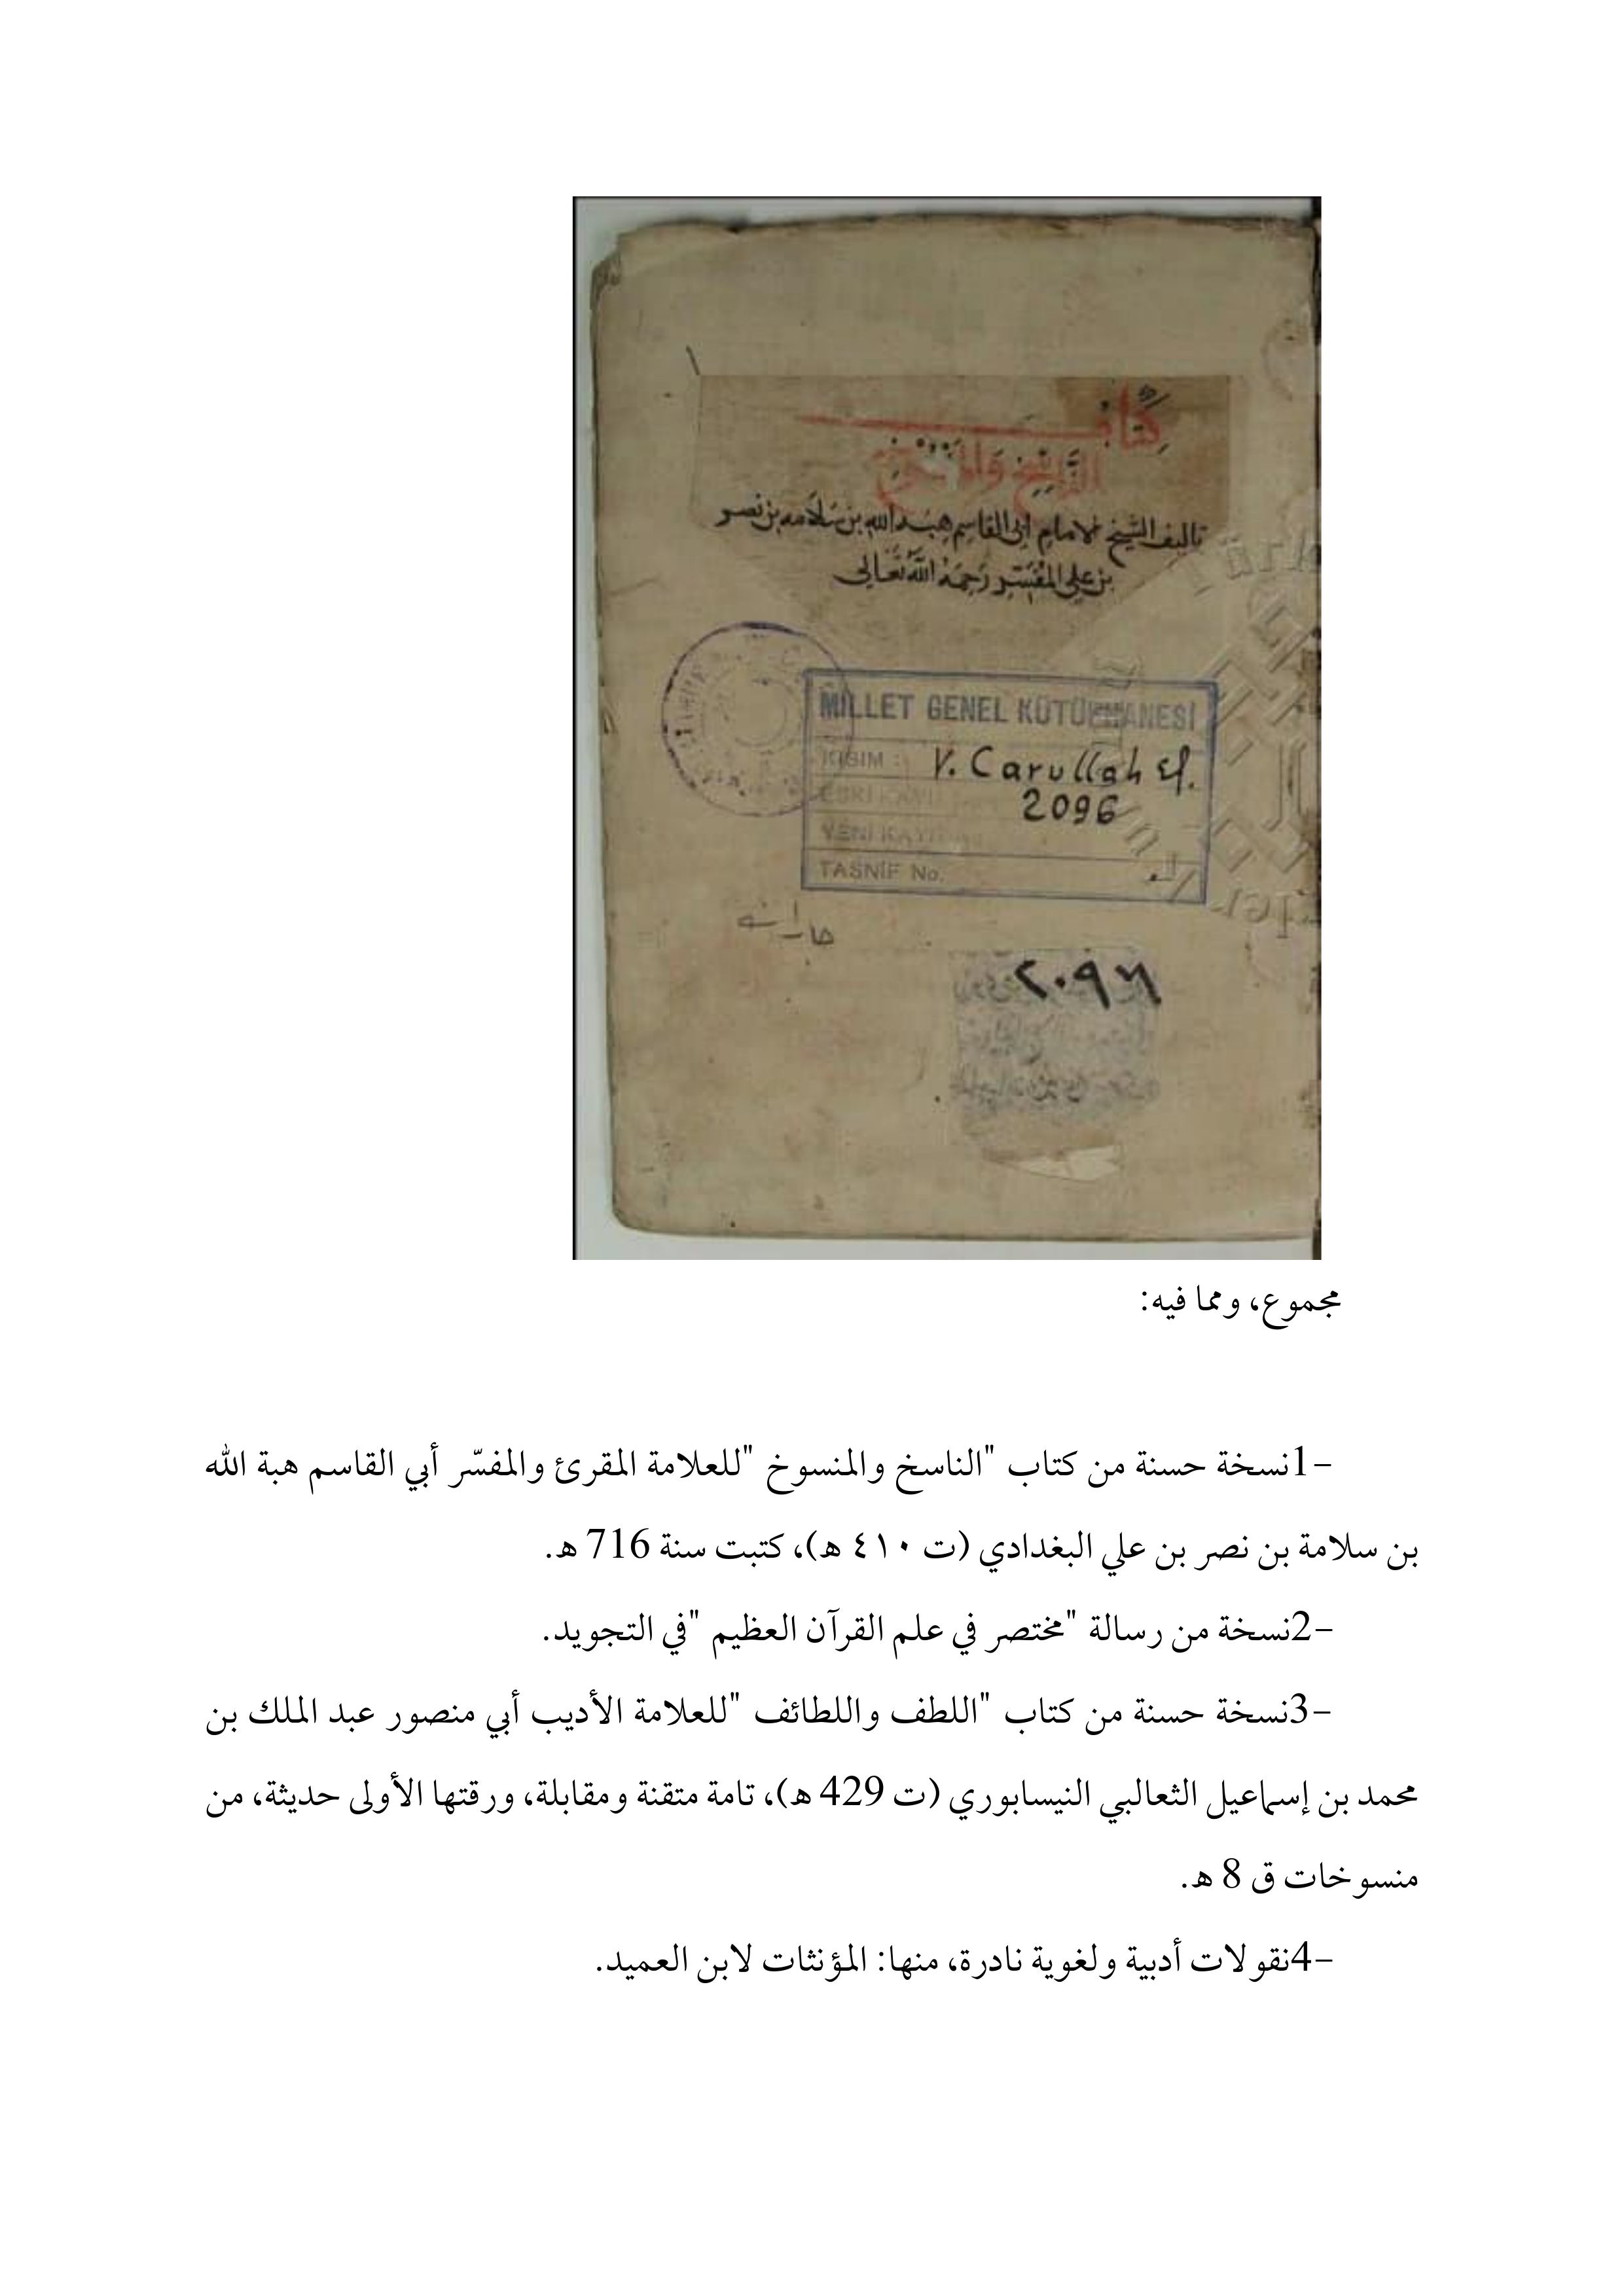 كتاب
الناسخ والمنسوخ
تاليف الشيخ الامام ابى القاسم هبة الله بن سلامه بن نصر
بن على المفسر رحمه الله تعالى
MİLLET GENEL KÜTÜPHANESİ
KISIM : V. Carullah Ef.
ESKİ KAYIT 2096
YENİ KAYIT
TASNİF No.
٢٠٩٦
مجموع، ومما فيه:
-1نسخة حسنة من كتاب "الناسخ والمنسوخ "للعلامة المقرئ والمفسّر أبي القاسم هبة الله
بن سلامة بن نصر بن علي البغدادي (ت ٤١٠ هـ)، كتبت سنة 716 هـ.
-2نسخة من رسالة "مختصر في علم القرآن العظيم "في التجويد.
-3نسخة حسنة من كتاب "اللطف واللطائف "للعلامة الأديب أبي منصور عبد الملك بن
محمد بن إسماعيل الثعالبي النيسابوري (ت 429 هـ)، تامة متقنة ومقابلة، ورقتها الأولى حديثة، من
منسوخات ق 8 هـ.
-4نقولات أدبية ولغوية نادرة، منها: المؤنثات لابن العميد.